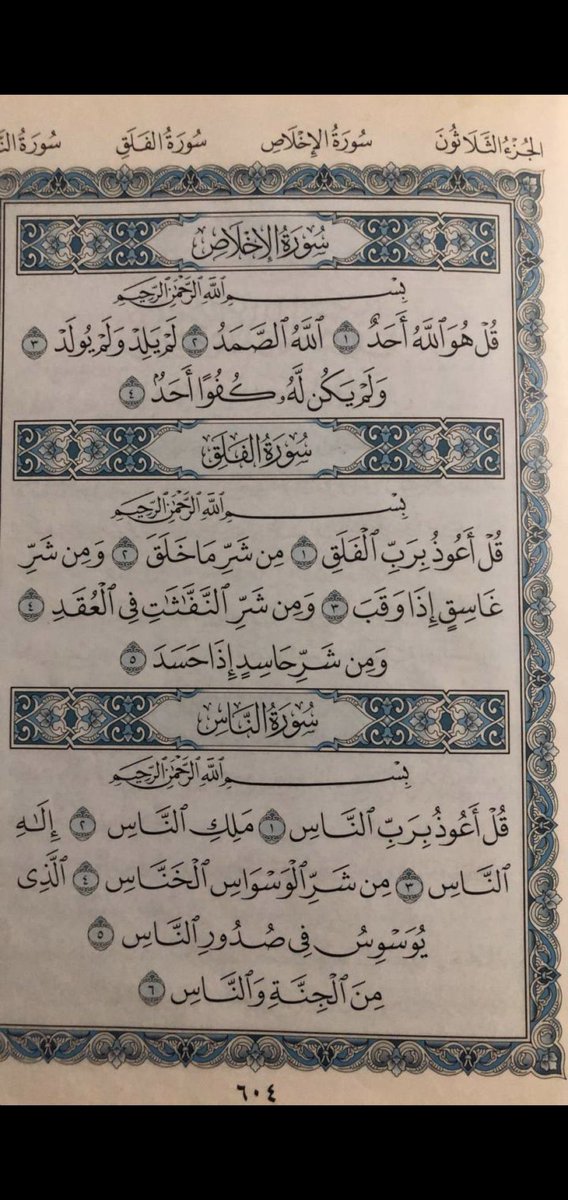 الجزء الثلاثون سورة الإخلاص سورة الفلق
سُورَةُ الإِخْلَاصِ
بِسْمِ ٱللَّهِ ٱلرَّحْمَٰنِ ٱلرَّحِيمِ
قُلْ هُوَ ٱللَّهُ أَحَدٌ ١ ٱللَّهُ ٱلصَّمَدُ ٢ لَمْ يَلِدْ وَلَمْ يُولَدْ ٣
وَلَمْ يَكُن لَّهُۥ كُفُوًا أَحَدٌۢ ٤
سُورَةُ الفَلَقِ
بِسْمِ ٱللَّهِ ٱلرَّحْمَٰنِ ٱلرَّحِيمِ
قُلْ أَعُوذُ بِرَبِّ ٱلْفَلَقِ ١ مِن شَرِّ مَا خَلَقَ ٢ وَمِن شَرِّ
غَاسِقٍ إِذَا وَقَبَ ٣ وَمِن شَرِّ ٱلنَّفَّٰثَٰتِ فِى ٱلْعُقَدِ ٤
وَمِن شَرِّ حَاسِدٍ إِذَا حَسَدَ ٥
سُورَةُ النَّاسِ
بِسْمِ ٱللَّهِ ٱلرَّحْمَٰنِ ٱلرَّحِيمِ
قُلْ أَعُوذُ بِرَبِّ ٱلنَّاسِ ١ مَلِكِ ٱلنَّاسِ ٢ إِلَٰهِ
ٱلنَّاسِ ٣ مِن شَرِّ ٱلْوَسْوَاسِ ٱلْخَنَّاسِ ٤ ٱلَّذِى
يُوَسْوِسُ فِى صُدُورِ ٱلنَّاسِ ٥
مِنَ ٱلْجِنَّةِ وَٱلنَّاسِ ٦
٦٠٤